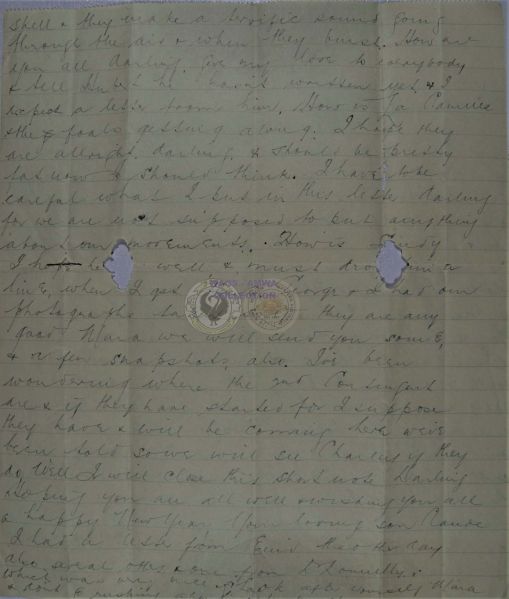 shell & they make a terrific sound going
through the air & when they burst. How are
you all darling. Give my love to everybody
& tell he hasn't written yet & I
expect a letter from him. How is
& the foals getting along. I hope they
are allright, darling, & should be pretty
fat now I should think. I have to be
careful what I put in this letter darling
for we are not supposed to put anything
about our movements. How is
I hope he is well & must drop him a
line, when I get George & I had our
photographs & they are any
good Mara we will send you some,
& a few snapshots also. I've been
wondering where the 2nd Contingent
are & if they have started for I suppose
they have & will be coming here we've
been told so we will see Charley if they
do. Well I will close this short note Darling
Hoping you are all well & wishing you all
a happy New Year Your loving son Claude
I had a letter from the other day
also several others & one from Donnelly
which was very nice after yourself Mara
& don't
WAGS - AMWA
COLLECTION